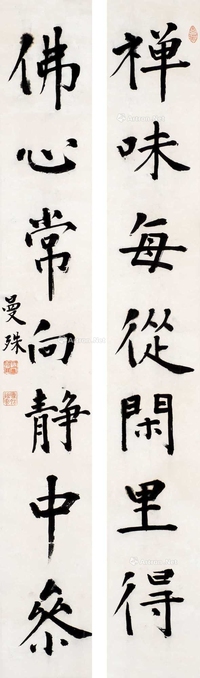 禅味每從閑里得
佛心常向静中叅
曼殊